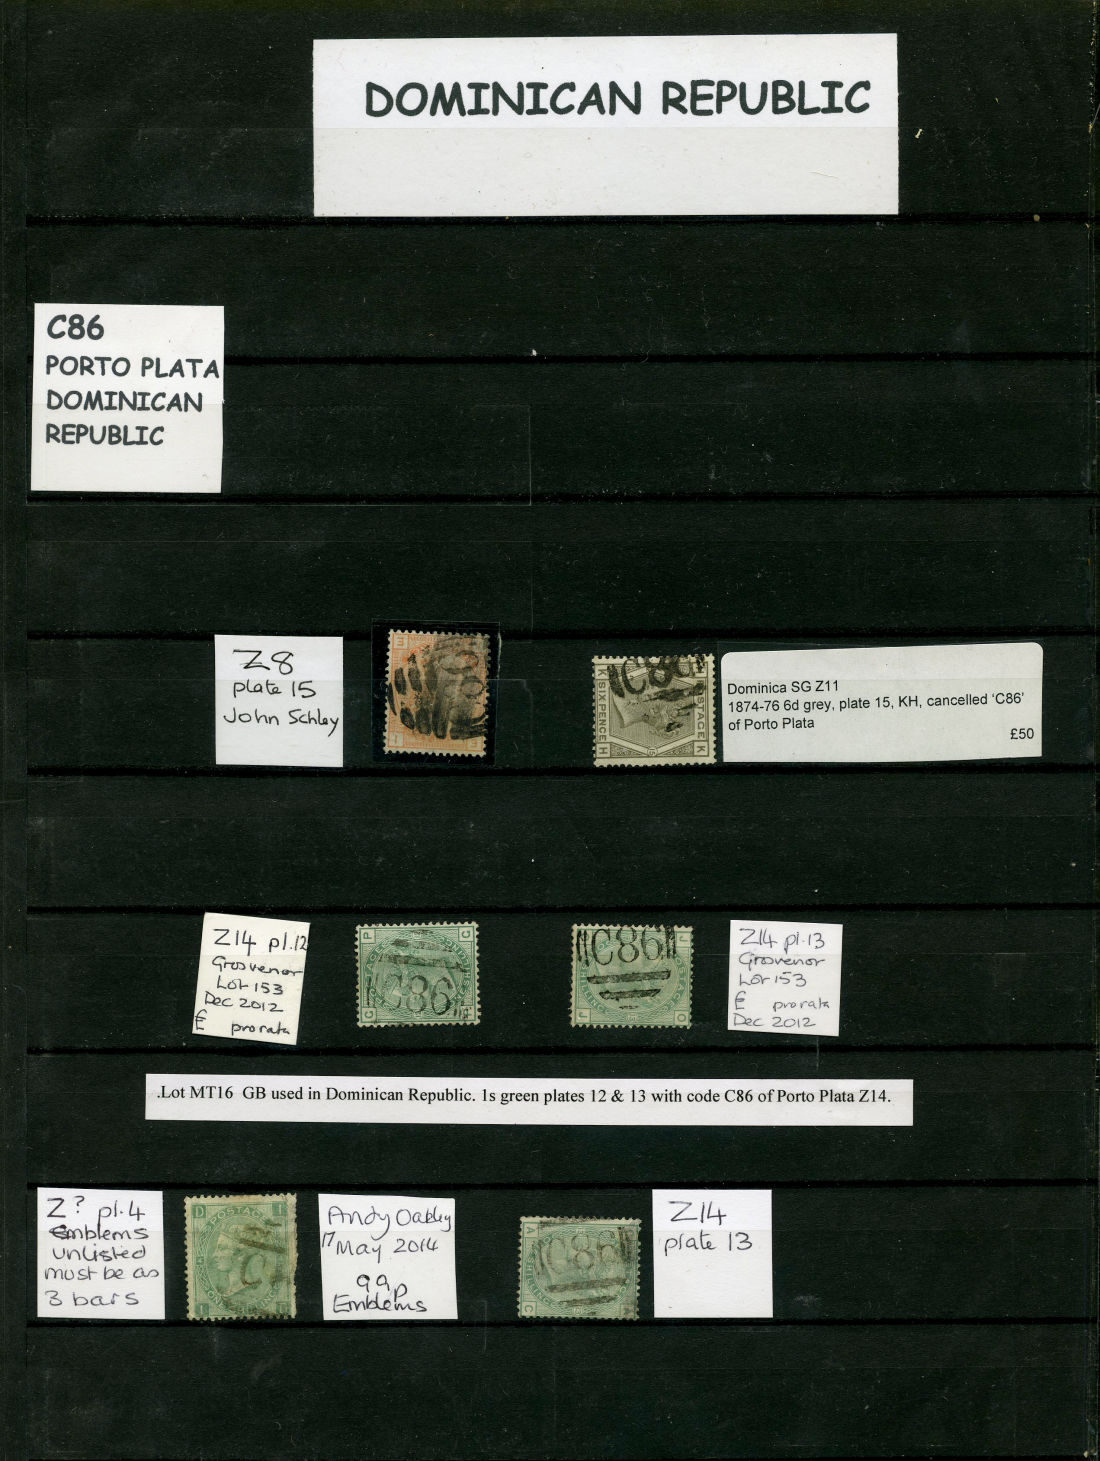 DOMINICAN REPUBLIC
C86
PORTO PLATA
DOMINICAN
REPUBLIC
Z8
plate 15
John Schley
E
L
E
C86
K
K
H
SIX PENCE
POSTAGE
15
Dominica SG Z11
1874-76 6d grey, plate 15, KH, cancelled ‘C86’
of Porto Plata
£50
Z14 pl.12
Grosvenor
Lot 153
Dec 2012
£ pro rata
P
G
G
C86
C86
J
J
O
Z14 pl.13
Grosvenor
Lot 153
£ pro rata
Dec 2012
.Lot MT16 GB used in Dominican Republic. 1s green plates 12 & 13 with code C86 of Porto Plata Z14.
Z? pl.4
Emblems
unlisted
must be as
3 bars
D
I
POSTAGE
C
I
Andy Oakley
17 May 2014
99p
Emblems
A
C86
C
Z14
plate 13